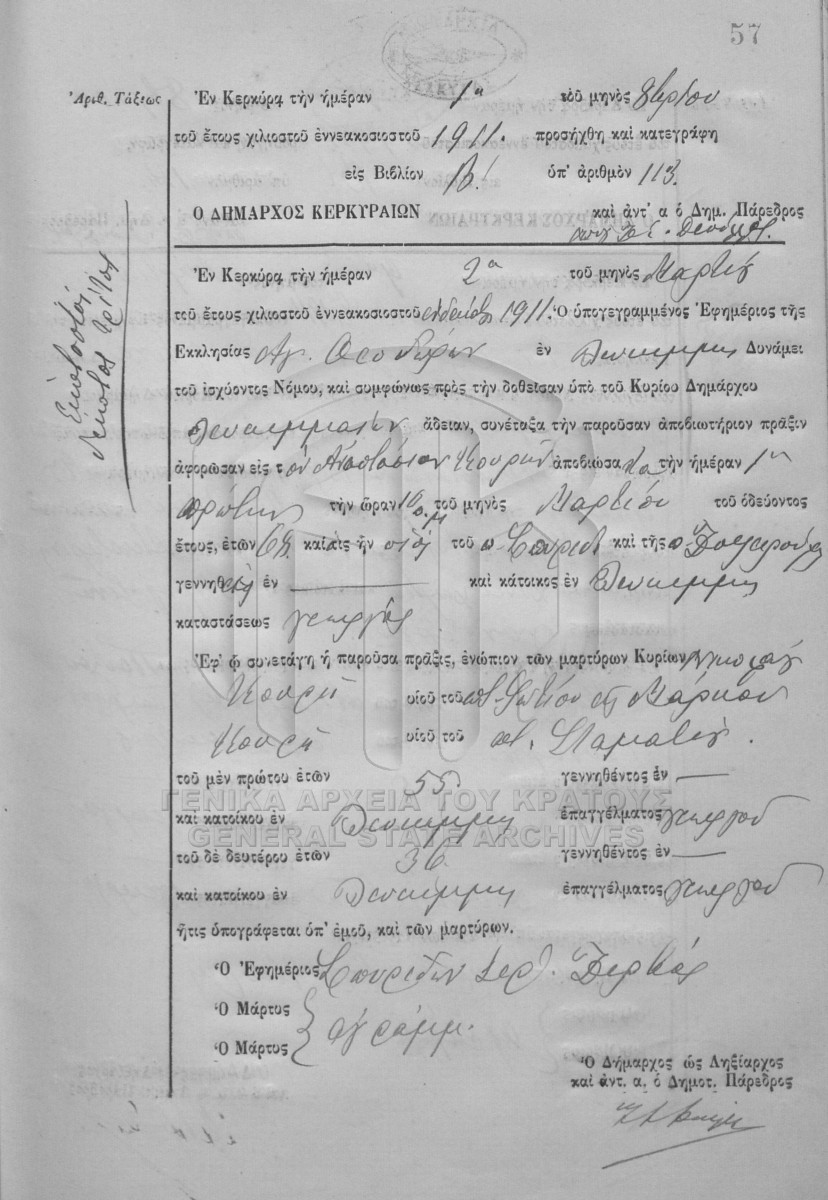 57
Ἀριθ. Τάξεως
Ἐν Κερκύρᾳ τὴν ἡμέραν 1η τοῦ μηνὸς
τοῦ ἔτους χιλιοστοῦ ἐννεακοσιοστοῦ 1911. προσήχθη καὶ κατεγράφη
εἰς Βιβλίον Β' ὑπ' ἀριθμὸν 113.
Ο ΔΗΜΑΡΧΟΣ ΚΕΡΚΥΡΑΙΩΝ καὶ ἀντ' α ὁ Δημ. Πάρεδρος
Ἑκατοστὸς
δέκατος τρίτος
Ἐν Κερκύρᾳ τὴν ἡμέραν 2α τοῦ μηνὸς Μαρτίου
τοῦ ἔτους χιλιοστοῦ ἐννεακοσιοστοῦ ἑνδεκάτου 1911. Ὁ ὑπογεγραμμένος Ἐφημέριος τῆς
Ἐκκλησίας Ἁγ. Θεοδώρων ἐν Λευκίμμῃ Δυνάμει
τοῦ ἰσχύοντος Νόμου, καὶ συμφώνως πρὸς τὴν δοθεῖσαν ὑπὸ τοῦ Κυρίου Δημάρχου
Λευκιμμαίων ἄδειαν, συνέταξα τὴν παροῦσαν ἀποβιωτήριον πρᾶξιν
ἀφορῶσαν εἰς τὸν Ἀναστάσιον Κουρῆν ἀποβιώσαντα τὴν ἡμέραν 1ην
πρώτην τὴν ὥραν 10 π.μ τοῦ μηνὸς Μαρτίου τοῦ ὁδεύοντος
ἔτους, ἐτῶν καὶ τις ἦν υἱὸς τοῦ π. Σπυρίδ. καὶ τῆς
γεννηθεὶς ἐν — καὶ κάτοικος ἐν Λευκίμμῃ
καταστάσεως γεωργός
Ἐφ' ᾧ συνετάγη ἡ παροῦσα πρᾶξις, ἐνώπιον τῶν μαρτύρων Κυρίων
Κουρῆ υἱοῦ τοῦ ποτ. Φωτίου καὶ Μάρκου
Κουρῆ υἱοῦ τοῦ ποτ. Σταματίου.
τοῦ μὲν πρώτου ἐτῶν 55 γεννηθέντος ἐν —
ΓΕΝΙΚΑ ΑΡΧΕΙΑ ΤΟΥ ΚΡΑΤΟΥΣ
καὶ κατοίκου ἐν Λευκίμμῃ ἐπαγγέλματος γεωργοῦ
GENERAL STATE ARCHIVES
τοῦ δὲ δευτέρου ἐτῶν 36 γεννηθέντος ἐν —
καὶ κατοίκου ἐν Λευκίμμῃ ἐπαγγέλματος γεωργοῦ
ἥτις ὑπογράφεται ὑπ' ἐμοῦ, καὶ τῶν μαρτύρων.
Ὁ Ἐφημέριος Σπυρίδων Ἱερ.
Ὁ Μάρτυς
ἀγράμμ.
Ὁ Μάρτυς
Ὁ Δήμαρχος ὡς Ληξίαρχος
καὶ ἀντ. α. ὁ Δημοτ. Πάρεδρος